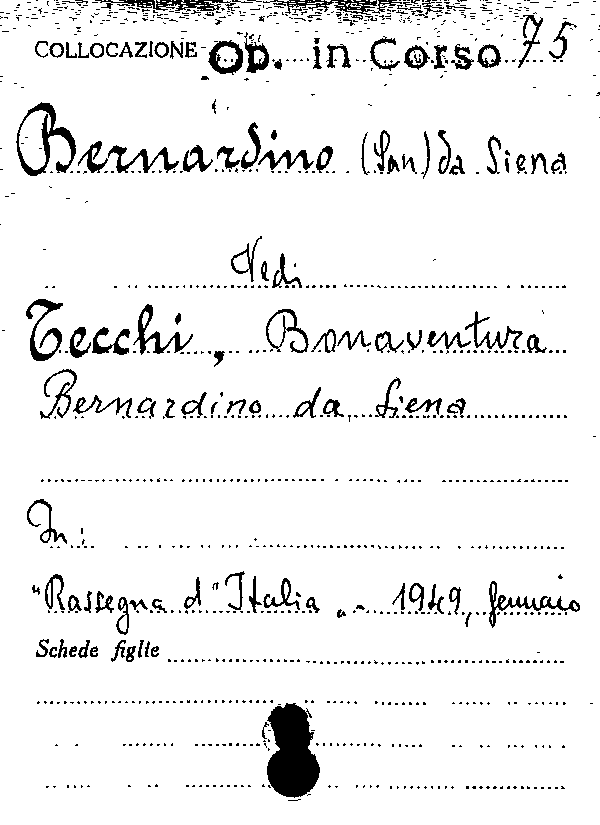 COLLOCAZIONE Op. in Corso 75
Bernardino (San) da Siena
Vedi
Tecchi, Bonaventura
Bernardino da Siena
In:
"Rassegna d'Italia„ - 1949, gennaio
Schede figlie